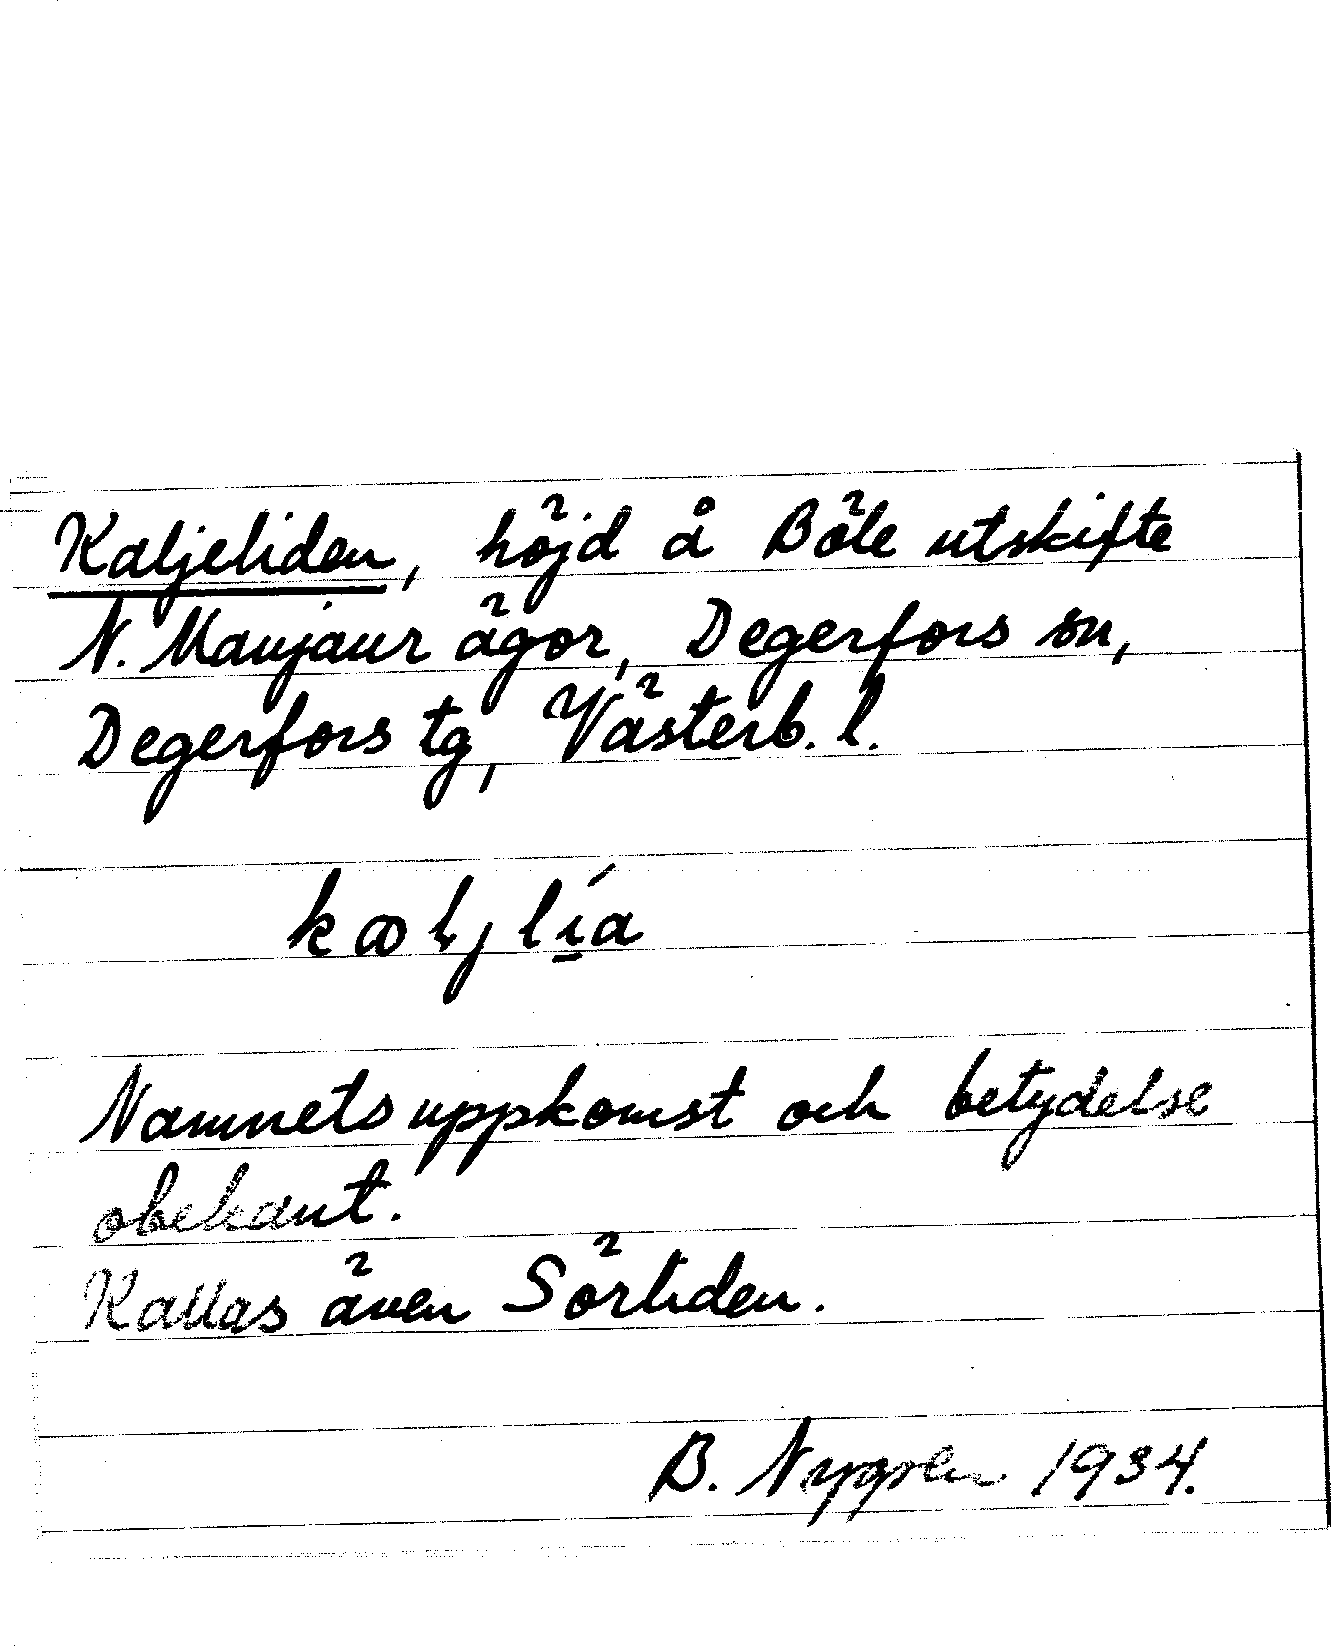 Kaljeliden, höjd å Böle utskifte
N. Maujaur ägor, Degerfors sn,
Degerfors tg, Västerb. l.
kalj lía
Namnets uppkomst och betydelse
obekant.
Kallas även Sörliden.
B. Nygren 1934.